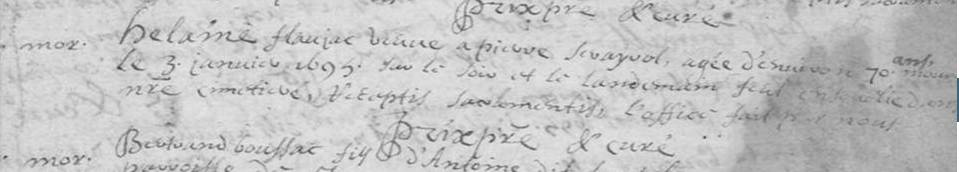 Prixpre & curé
mor. helaine flaujac veuve a pierre scrayrol, agée d'environ 70 ans mouru
le 3. janvier 1695. sur le soir et le landemain feut ensevelie dans
nre cimetiere, receptis sacramentis, l'office fait par nous
Prixpre & curé
mor. Bertrand boussac fils d'Antoine dit
parroisse